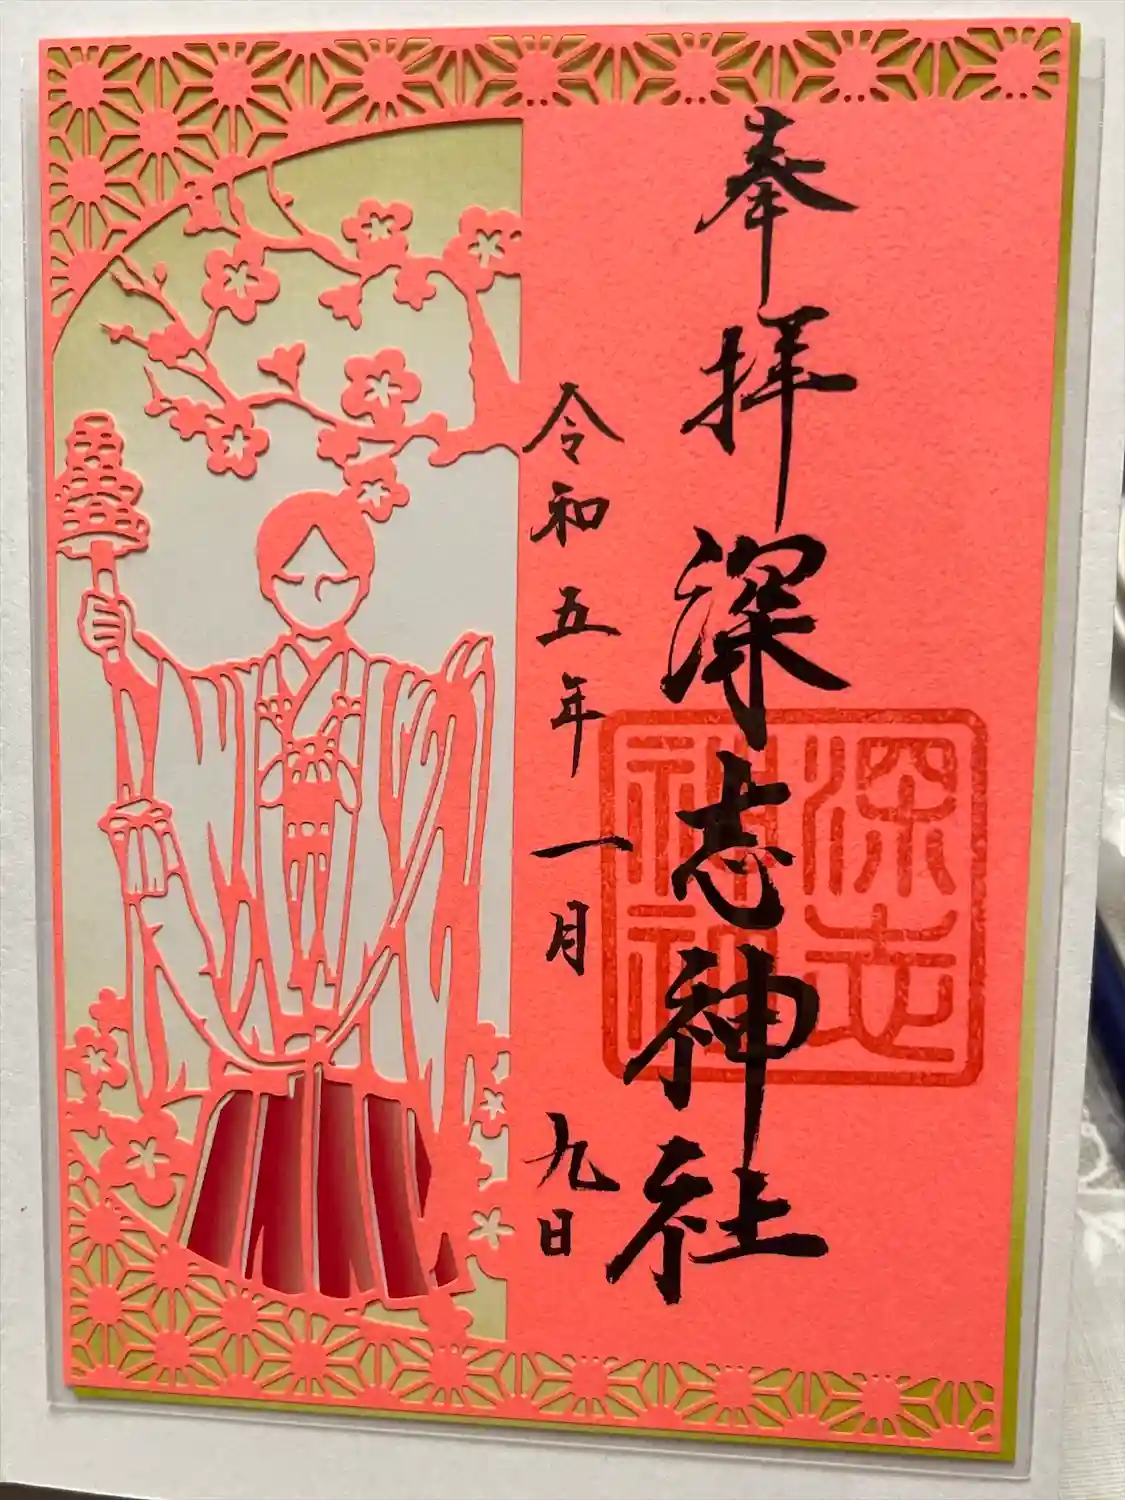 奉拝
深志神社
深志神社
令和五年一月九日